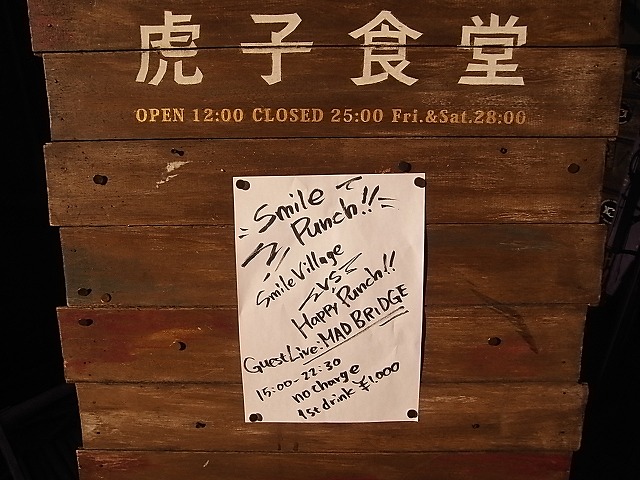 虎子食堂
OPEN 12:00 CLOSED 25:00 Fri.&Sat.28:00
Smile
Punch!!
Smile Village
VS
Happy Punch!!
Guest Live: MAD BRIDGE
15:00-22:30
no charge
1st drink ¥1.000